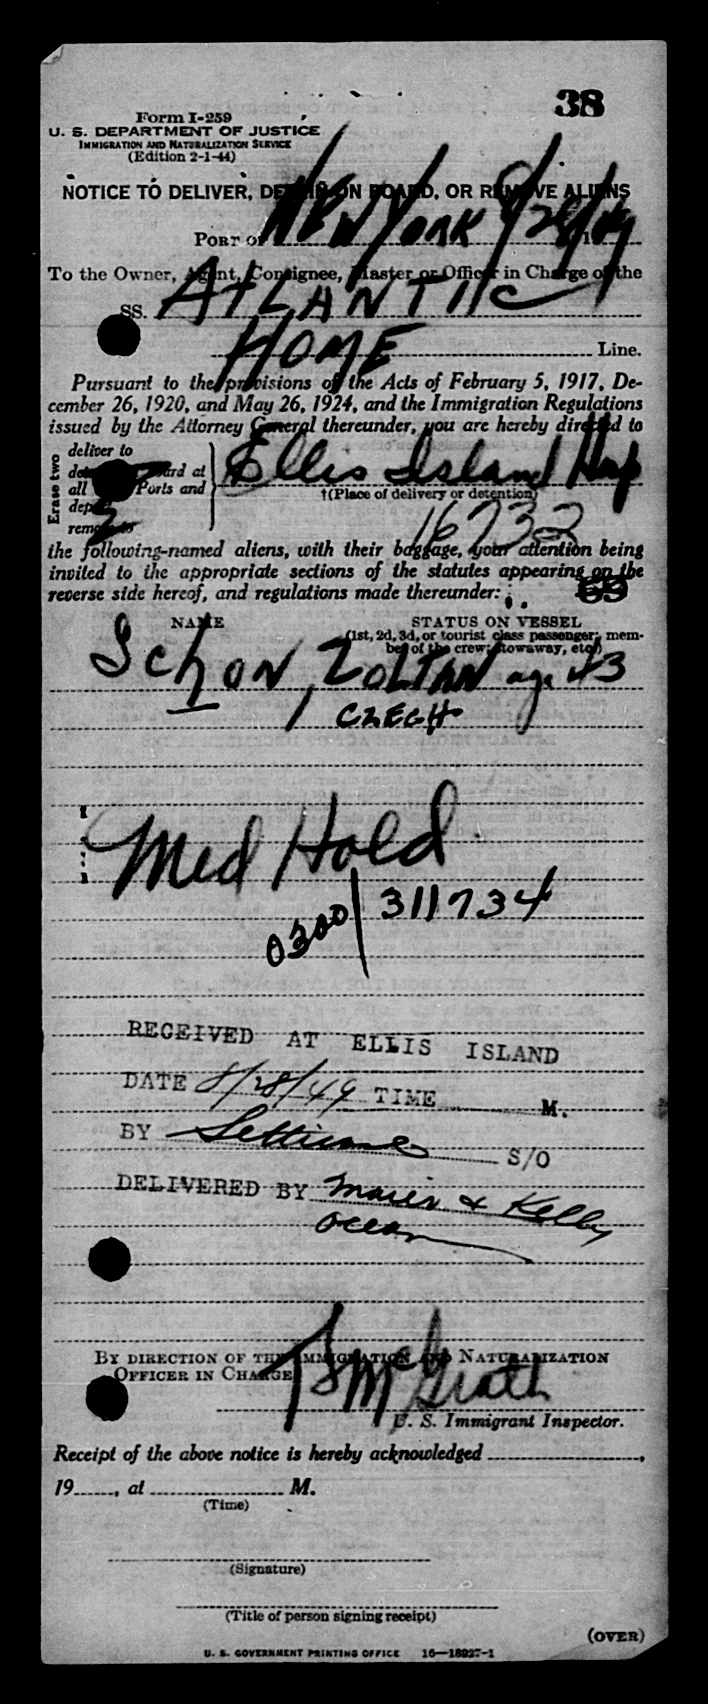 38
Form I-259
U. S. DEPARTMENT OF JUSTICE
IMMIGRATION AND NATURALIZATION SERVICE
(Edition 2-1-44)
NOTICE TO DELIVER, DETAIN ON BOARD, OR REMOVE ALIENS
PORT OF NEW YORK 8/28/49
To the Owner, Agent, Consignee, Master or Officer in Charge of the
SS. ATLANTIC
HOME Line.
Pursuant to the provisions of the Acts of February 5, 1917, De-
cember 26, 1920, and May 26, 1924, and the Immigration Regulations
issued by the Attorney General thereunder, you are hereby directed to
Erase two
deliver to
board at
all Ports and
remove to
Ellis Island Hosp
†(Place of delivery or detention)
16732
the following-named aliens, with their baggage, your attention being
invited to the appropriate sections of the statutes appearing on the
reverse side hereof, and regulations made thereunder:
69
NAME STATUS ON VESSEL
(1st, 2d, 3d, or tourist class passenger; mem-
ber of the crew; stowaway, etc.)
SCHON, ZOLTAN age 43
CZECH
Med Hold
0300/311734
RECEIVED AT ELLIS ISLAND
DATE 8/28/49 TIME M.
BY S/O
DELIVERED BY Maier & Kelly
Ocean
BY DIRECTION OF THE IMMIGRATION AND NATURALIZATION
OFFICER IN CHARGE
McGrath
U. S. Immigrant Inspector.
Receipt of the above notice is hereby acknowledged
19, at M.
(Time)
(Signature)
(Title of person signing receipt)
(OVER)
U. S. GOVERNMENT PRINTING OFFICE 16—18927-1